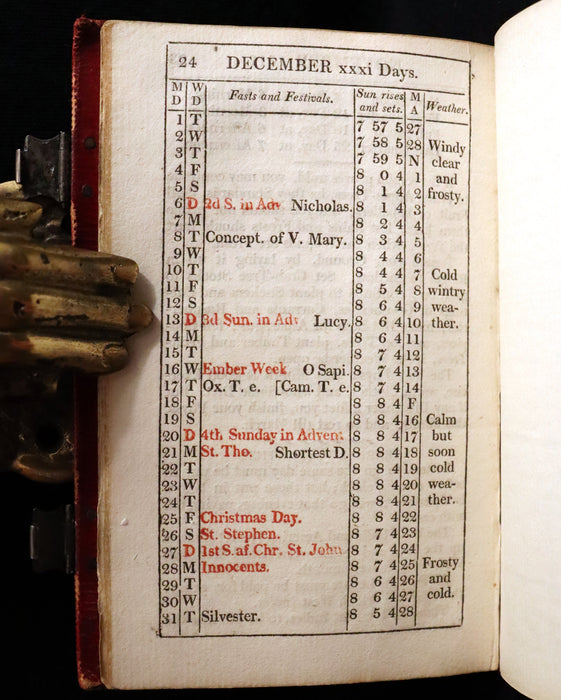 24 DECEMBER xxxi Days.
M D W D Fasts and Festivals. Sun rises and sets. M A Weather.
1 T 7 57 5 27
2 W 7 58 5 28 Windy
3 T 7 59 5 N clear
4 F 8 0 4 1 and
5 S 8 1 4 2 frosty.
6 D 2d S. in Adv Nicholas. 8 1 4 3
7 M 8 2 4 4
8 T Concept. of V. Mary. 8 3 4 5
9 W 8 4 4 6
10 T 8 4 4 7 Cold
11 F 8 5 4 8 wintry
12 S 8 6 4 9 wea-
13 D 3d Sun. in Adv Lucy. 8 6 4 10 ther.
14 M 8 6 4 11
15 T 8 7 4 12
16 W Ember Week O Sapi. 8 7 4 13
17 T Ox. T. e. [Cam. T. e. 8 7 4 14
18 F 8 8 4 F
19 S 8 8 4 16 Calm
20 D 4th Sunday in Advent. 8 8 4 17 but
21 M St. Tho. Shortest D. 8 8 4 18 soon
22 T 8 8 4 19 cold
23 W 8 8 4 20 wea-
24 T 8 8 4 21 ther.
25 F Christmas Day. 8 8 4 22
26 S St. Stephen. 8 7 4 23
27 D 1st S. af. Chr. St. John 8 7 4 24
28 M Innocents. 8 7 4 25 Frosty
29 T 8 6 4 26 and
30 W 8 6 4 27 cold.
31 T Silvester. 8 5 4 28